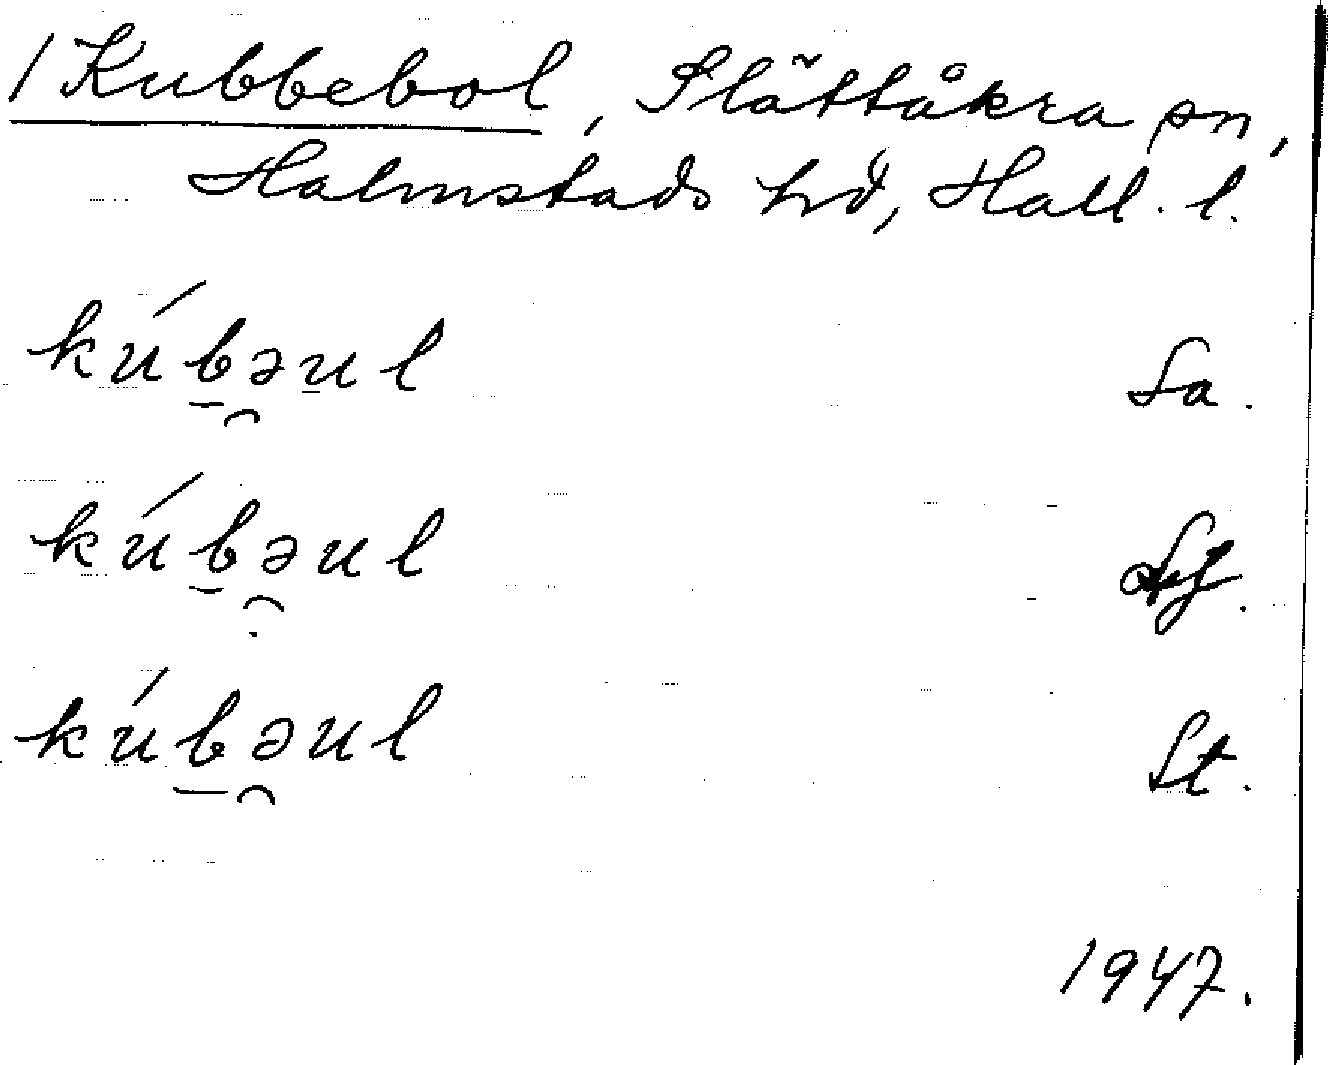 / Kubbebol, Slättåkra sn,
Halmstads hd, Hall. l.
kúbəul Sa.
kúbəul
kúbəul St.
1947.